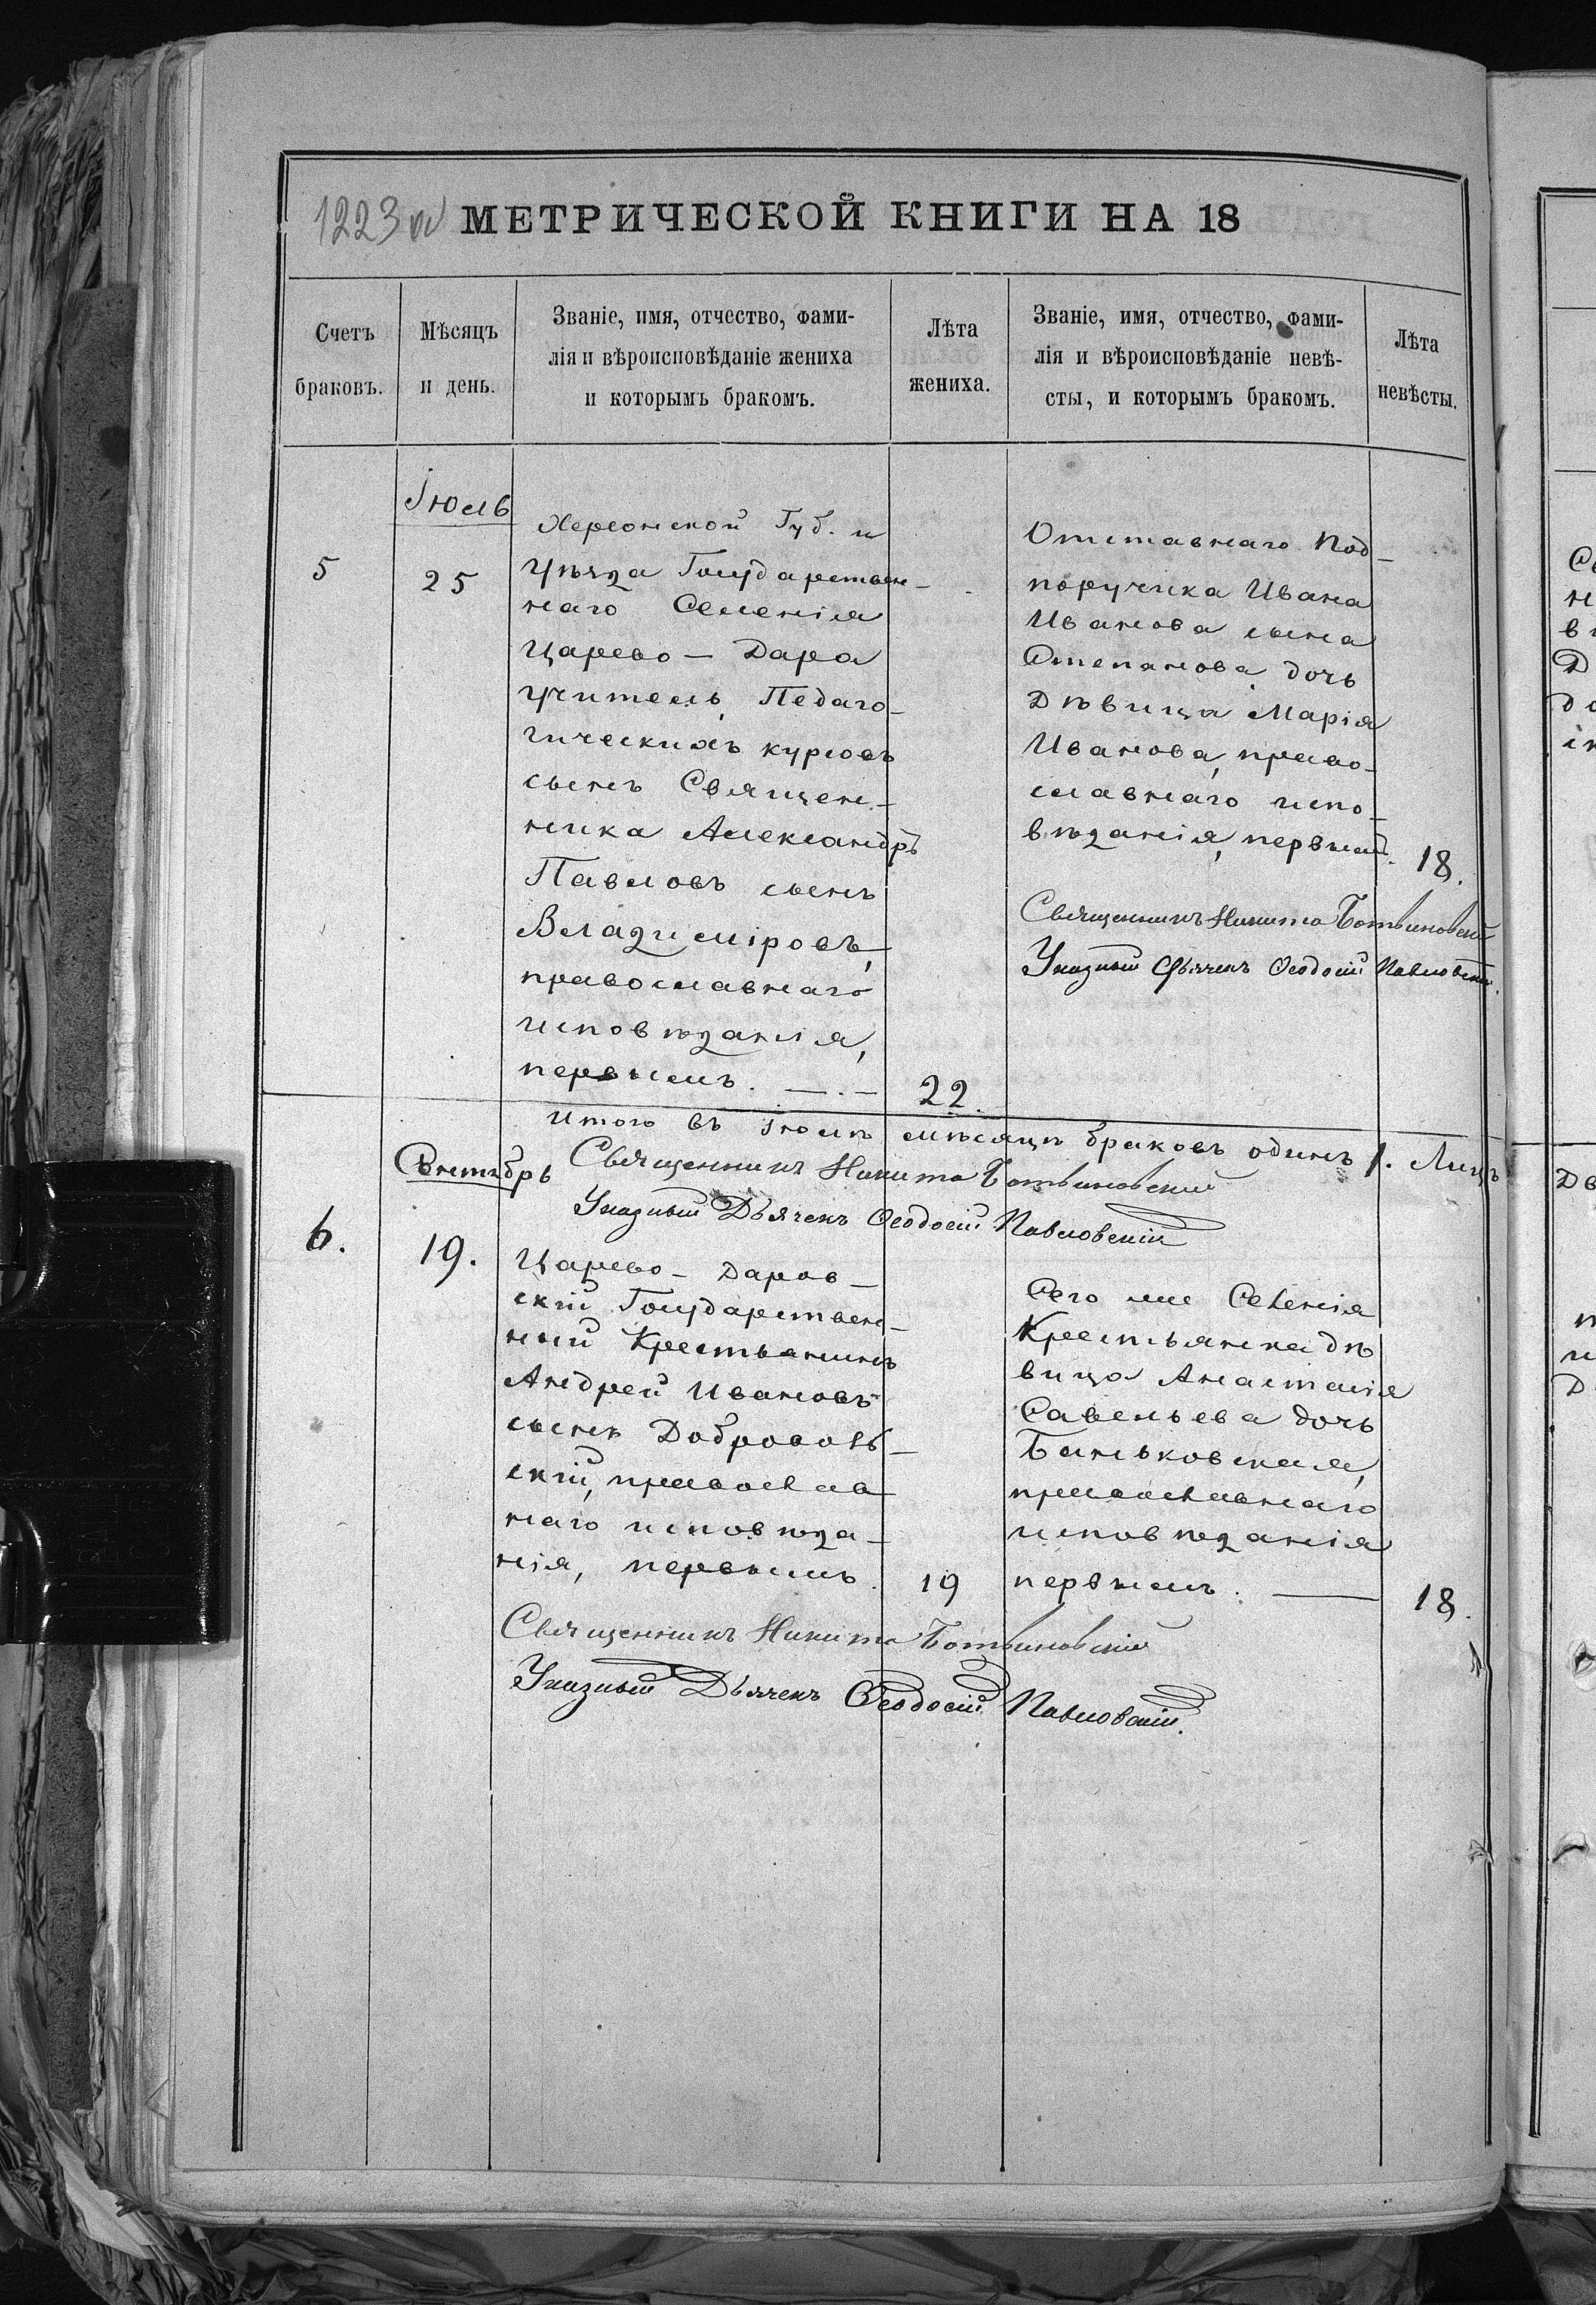 1223 об
МЕТРИЧЕСКОЙ КНИГИ НА 18
Счетъ
браковъ.
Мѣсяцъ
и день.
Званіе, имя, отчество, фами-
лія и вѣроисповѣданіе жениха
и которымъ бракомъ.
Лѣта
жениха.
Званіе, имя, отчество, фами-
лія и вѣроисповѣданіе невѣ-
сты, и которымъ бракомъ.
Лѣта
невѣсты.
Іюль
5
25
Херсонской Губ. и
Уѣзда Государствен-
наго Селенія
Царево-Дара
Учитель, Педаго-
гическихъ курсовъ
сынъ Священ-
ника Александръ
Павловъ сынъ
Владиміровъ,
православнаго
исповѣданія,
первымъ.
22.
Отставнаго Под-
поручика Ивана
Иванова сына
Степанова дочь
Дѣвица Марія
Иванова, право-
славнаго испо-
вѣданія, первым.
18.
Священникъ Никита Ботвиновскій
Указный Дьячекъ Ѳеодосій Павловскій.
Итого въ Іюлѣ мѣсяцѣ браковъ одинъ 1. Лицъ
Священникъ Никита Ботвиновскій
Указный Дьячекъ Ѳеодосій Павловскій
6.
19.
Царево-Даров-
скій Государствен-
ный Крестьянинъ
Андрей Ивановъ
сынъ Добровол-
скій, православ
наго исповѣда-
нія, первымъ.
19
Сего же Селенія
Крестьянка дѣ
вица Анастасія
Савельева дочь
Баньковская,
православнаго
исповѣданія
первымъ.
18.
Священникъ Никита Ботвиновскій
Указный Дьячекъ Ѳеодосій Павловскій.